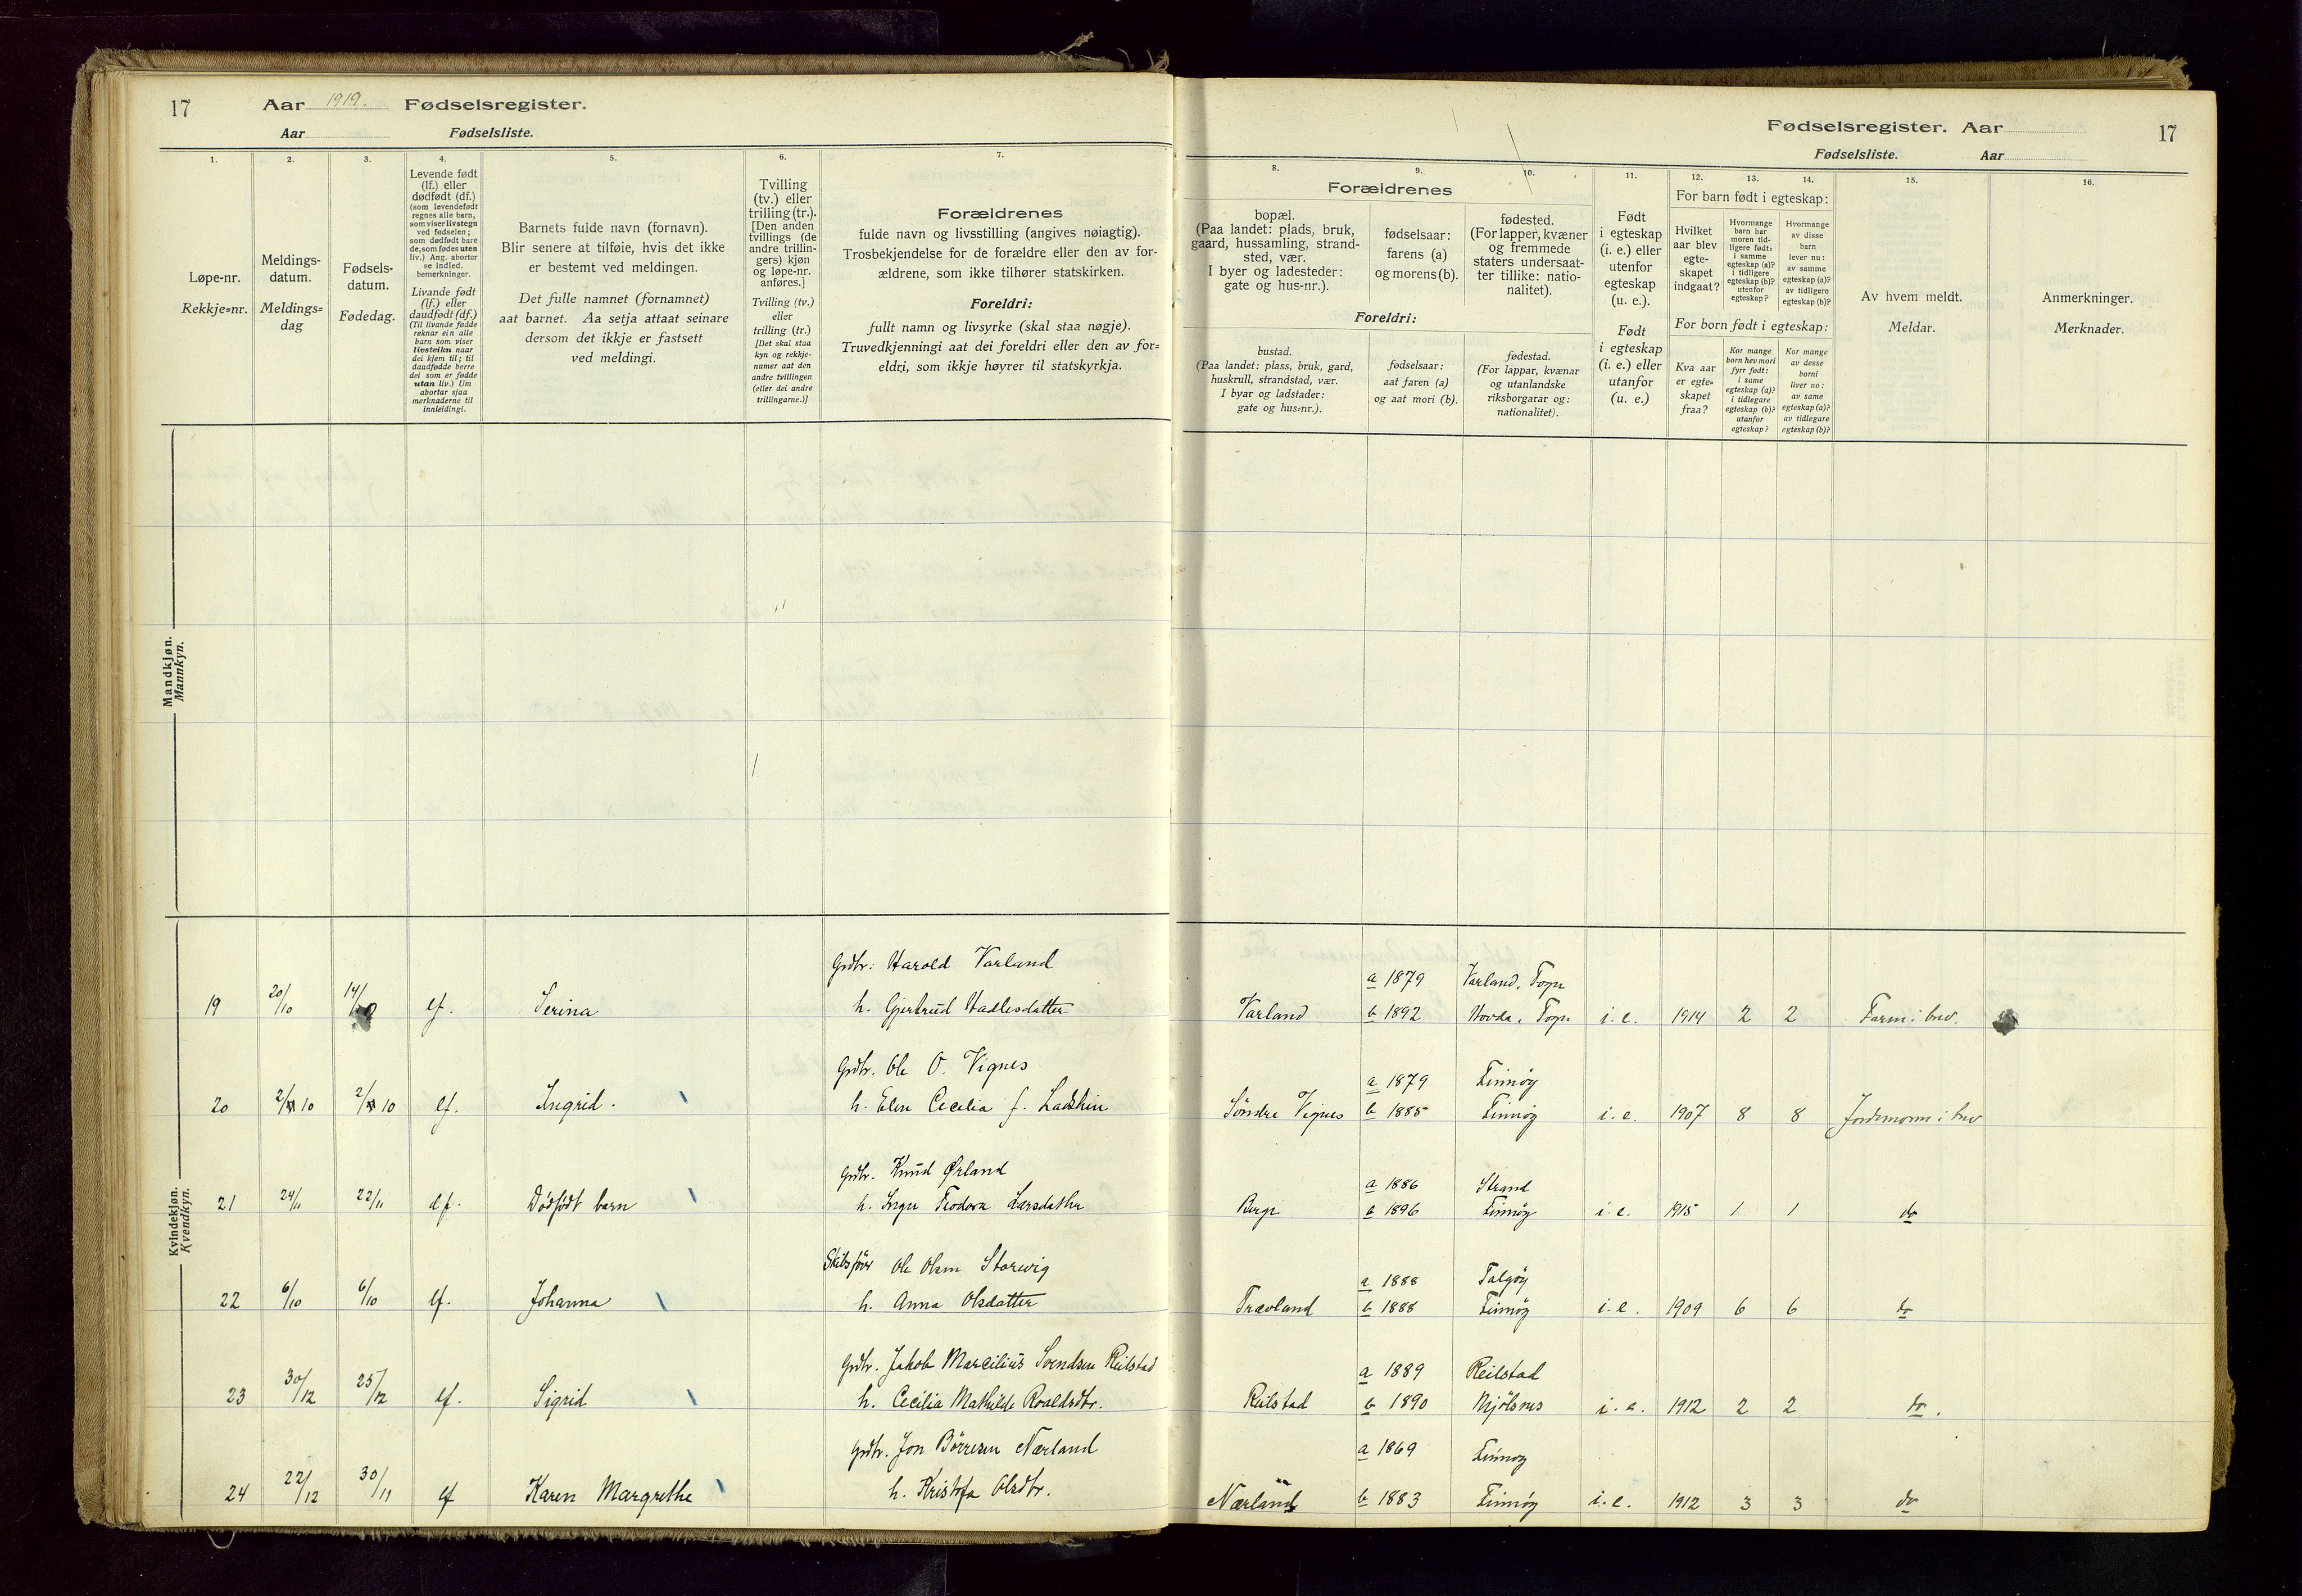 17
Aar 1919. Fødselsregister.
Aar Fødselsliste.
1.
Løpe-nr.
Rekkje=nr.
2.
Meldings-
datum.
Meldings=
dag
3.
Fødsels-
datum.
Fødedag.
4.
Levende født
(lf.) eller
dødfødt (df.)
(som levendefødt
regnes alle barn,
som viser livstegn
ved fødselen;
som dødfødt bare
de, som fødes uten
liv.) Ang. aborter
se indled.
bemerkninger.
Livande født
(lf.) eller
daudfødt (df.)
(Til livande fødde
reknar ein alle
barn som viser
livsteikn naar
dei kjem til; til
daudfødde berre
dei som er fødde
utan liv.) Um
abortar sjaa
merknaderne til
innleidingi.
5.
Barnets fulde navn (fornavn).
Blir senere at tilføie, hvis det ikke
er bestemt ved meldingen.
Det fulle namnet (fornamnet)
aat barnet. Aa setja attaat seinare
dersom det ikkje er fastsett
ved meldingi.
6.
Tvilling
(tv.) eller
trilling (tr.).
[Den anden
tvillings (de
andre trillin-
gers) kjøn
og løpe-nr.
anføres.]
Tvilling (tv.)
eller
trilling (tr.)
[Det skal staa
kyn og rekkje-
numer aat den
andre tvillingen
(eller dei andre
trillingarne.)]
7.
Forældrenes
fulde navn og livsstilling (angives nøiagtig).
Trosbekjendelse for de forældre eller den av for-
ældrene, som ikke tilhører statskirken.
Foreldri:
fullt namn og livsyrke (skal staa nøgje).
Truvedkjenningi aat dei foreldri eller den av for=
eldri, som ikkje høyrer til statskyrkja.
Fødselsregister. Aar
17
Fødselsliste. Aar
Forældrenes
8.
bopæl.
(Paa landet: plads, bruk,
gaard, hussamling, strand-
sted, vær.
I byer og ladesteder:
gate og hus-nr.).
9.
fødselsaar:
farens (a)
og morens (b).
10.
fødested.
(For lapper, kvæner
og fremmede
staters undersaat-
ter tillike: natio-
nalitet).
Foreldri:
bustad.
(Paa landet: plass, bruk, gard,
huskrull, strandstad, vær.
I byar og ladstader:
gate og hus=nr.).
fødselsaar:
aat faren (a)
og aat mori (b).
fødestad.
(For lappar, kvænar
og utanlandske
riksborgarar og:
nationalitet).
11.
Født
i egteskap
(i. e.) eller
utenfor
egteskap
(u. e.).
Født
i egteskap
(i. e.) eller
utanfor
(u. e.)
For barn født i egteskap:
12.
Hvilket
aar blev
egte-
skapet
indgaat?
13.
Hvormange
barn har
moren tid-
ligere født:
i samme
egteskap (a)?
i tidligere
egteskap (b)?
utenfor
egteskap?
14.
Hvormange
av disse
barn
lever nu:
av samme
egteskap (a)?
av tidligere
egteskap (b)?
For born født i egteskap:
Kva aar
er egte=
skapet
fraa?
Kor mange
born hev mori
fyrr født:
i same
egteskap (a)?
i tidlegare
egteskap (b)?
utanfor
egteskap?
Kor mange
av desse
borni
liver no:
av same
egteskap (a)?
av tidlegare
egteskap (b)?
15.
Av hvem meldt.
Meldar.
16.
Anmerkninger.
Merknader.
Mandkjøn.
Mannkyn.
Kvindekjøn.
Kvendkyn.
Grdbr: Harold Varland a 1879 Varland, Fogn
19 20/10 14/ lf. Serina h. Gjertrud Hadlesdatter Varland b 1892 Hovda, Fogn i. e. 1914 2 2 Farm i brev.
Grdbr. Ole O. Vignes a 1879 Finnøy
20 2/10 2/10 lf. Ingrid. h. Elen Cecilia f. Ladstein Søndre Vignes b 1885 Finnøy i. e. 1907 8 8 Jordmoren i brev
Grdbr. Knud Ørland a 1886 Strand
21 24/11 22/11 df. Dødfødt barn h. Inger Teodora Larsdatter Berge b 1896 Finnøy i. e. 1915 1 1 do
Skibsfører Ole Olsen Storvig a 1888 Talgøy
22 6/10 6/10 lf. Johanna h. Anna Olsdatter Trævland b 1888 Finnøy i. e. 1909 6 6 do
Grdbr. Jakob Marcilius Svendsen Reilstad a 1889 Reilstad
23 30/12 25/12 lf. Sigrid h. Cecilia Mathilde Roaldsdtr. Reilstad b 1890 Mjølsnes i. e. 1912 2 2 do.
Grdbr. Jon Børresen Nærland a 1869 Finnøy
24 22/12 30/11 lf Karen Margrethe h. Kristofa Olsdtr. Nærland b 1883 Finnøy i. e. 1912 3 3 do